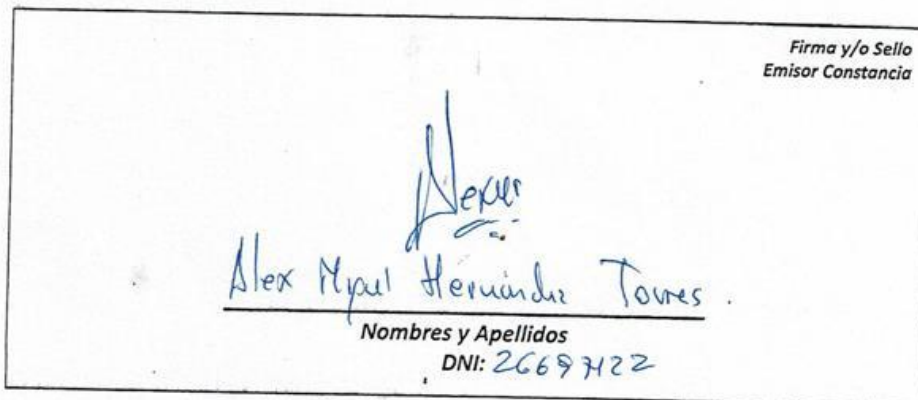 Firma y/o Sello
Emisor Constancia
Alex Miguel Hernández Torres.
Nombres y Apellidos
DNI: 26697122